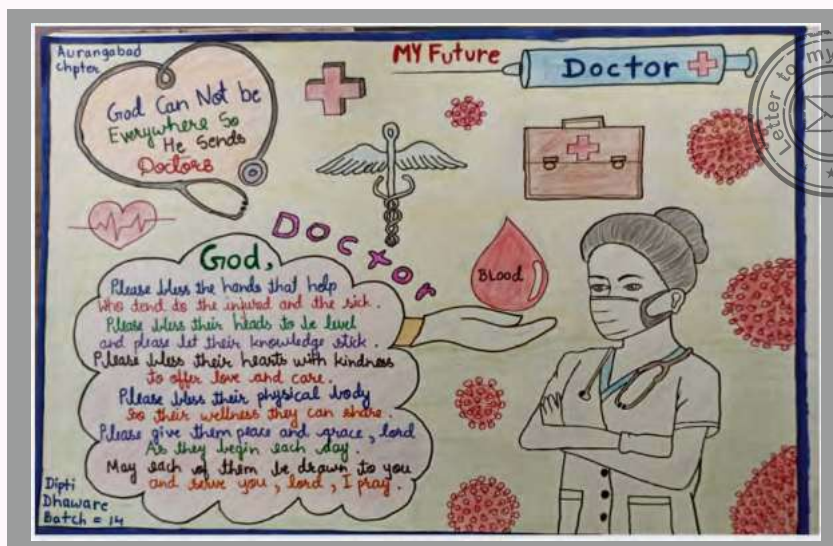 Aurangabad
Chpter
MY Future
Doctor
Letter to my
God Can Not be
Everywhere So
He Sends
Doctors
Doctor
God,
Please bless the hands that help
who tend to the injured and the sick.
Please bless their heads to be level
and please let their knowledge stick.
Please bless their hearts with kindness
to offer love and care.
Please bless their physical body
So their wellness they can share.
Please give them peace and grace, lord
As they begin each day.
May each of them be drawn to you
and serve you, lord, I pray.
BLOOD
Dipti
Dhaware
Batch = 14